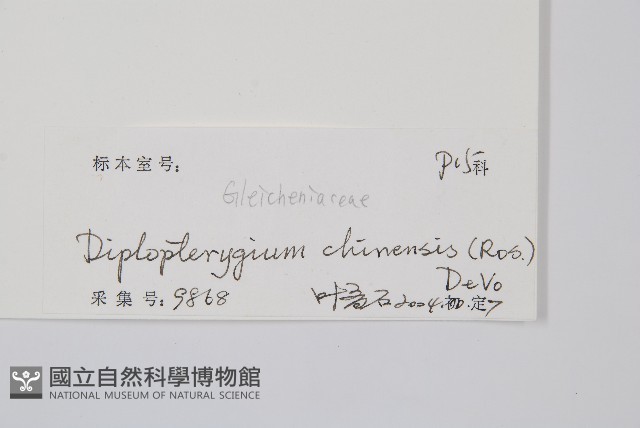 标本室号: P15科
Gleicheniaceae
Diplopterygium chinensis (Ros.)
DeVo
采集号: 9868 叶 石 2004. 初.定7
國立自然科學博物館
NATIONAL MUSEUM OF NATURAL SCIENCE